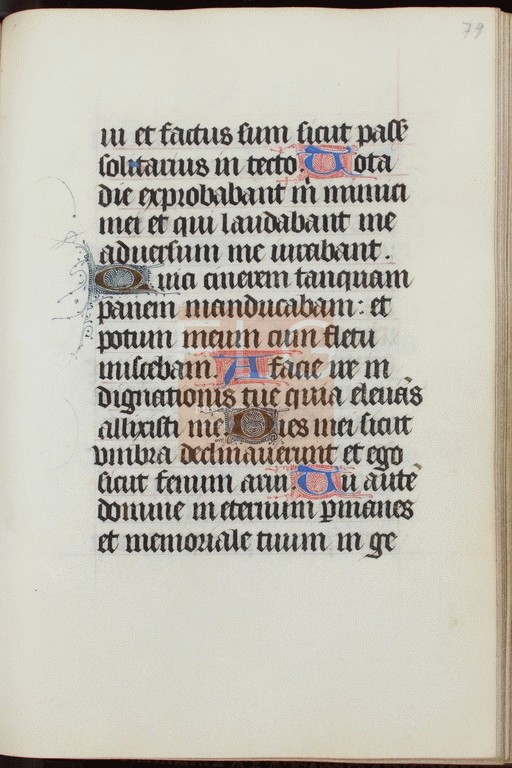 79
ui et factus sum sicut passẽ
solitarius in tecto Tota
die exprobabant m̃ inimici
mei et qui laudabant me
aduersum me iurabant.
Quia cinerem tanquam
panem manducabam: et
potum meum cum fletu
miscebam. A facie ire in
dignationis tue quia eleuãs
allixisti me Dies mei sicut
vmbra declinauerunt et ego
sicut fenum arui. Tu aute͂
domine in eternum p̱manes
et memoriale tuum in ge